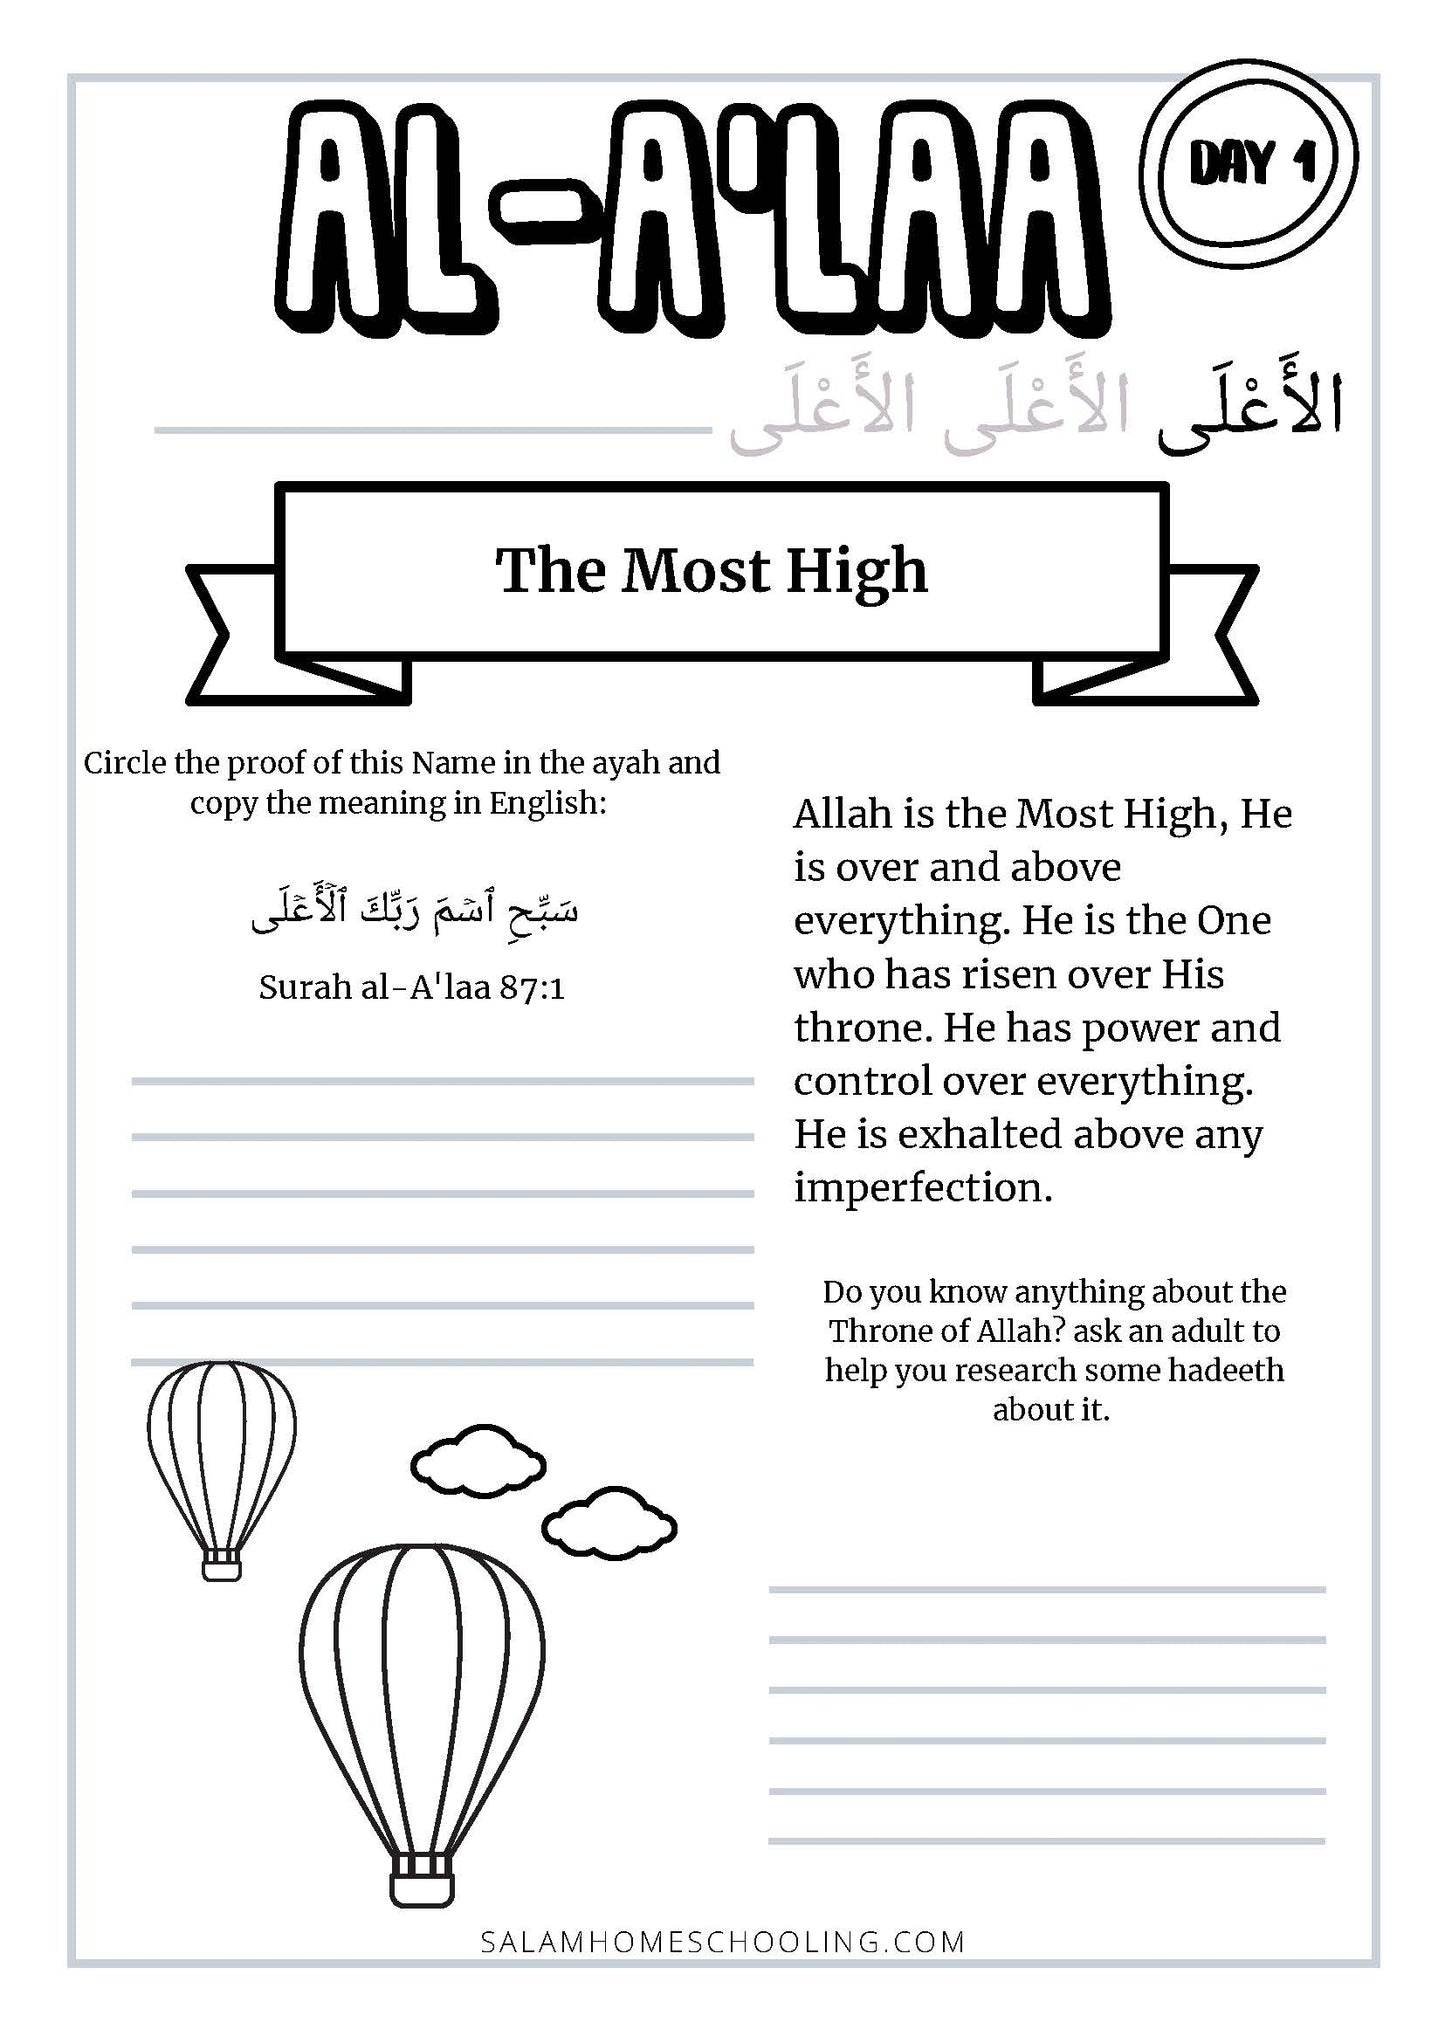 AL-A'LAA
DAY 1
الأَعْلَى الأَعْلَى الأَعْلَى
The Most High
Circle the proof of this Name in the ayah and
copy the meaning in English:
سَبِّحِ ٱسْمَ رَبِّكَ ٱلْأَعْلَى
Surah al-A'laa 87:1
Allah is the Most High, He
is over and above
everything. He is the One
who has risen over His
throne. He has power and
control over everything.
He is exhalted above any
imperfection.
Do you know anything about the
Throne of Allah? ask an adult to
help you research some hadeeth
about it.
SALAMHOMESCHOOLING.COM